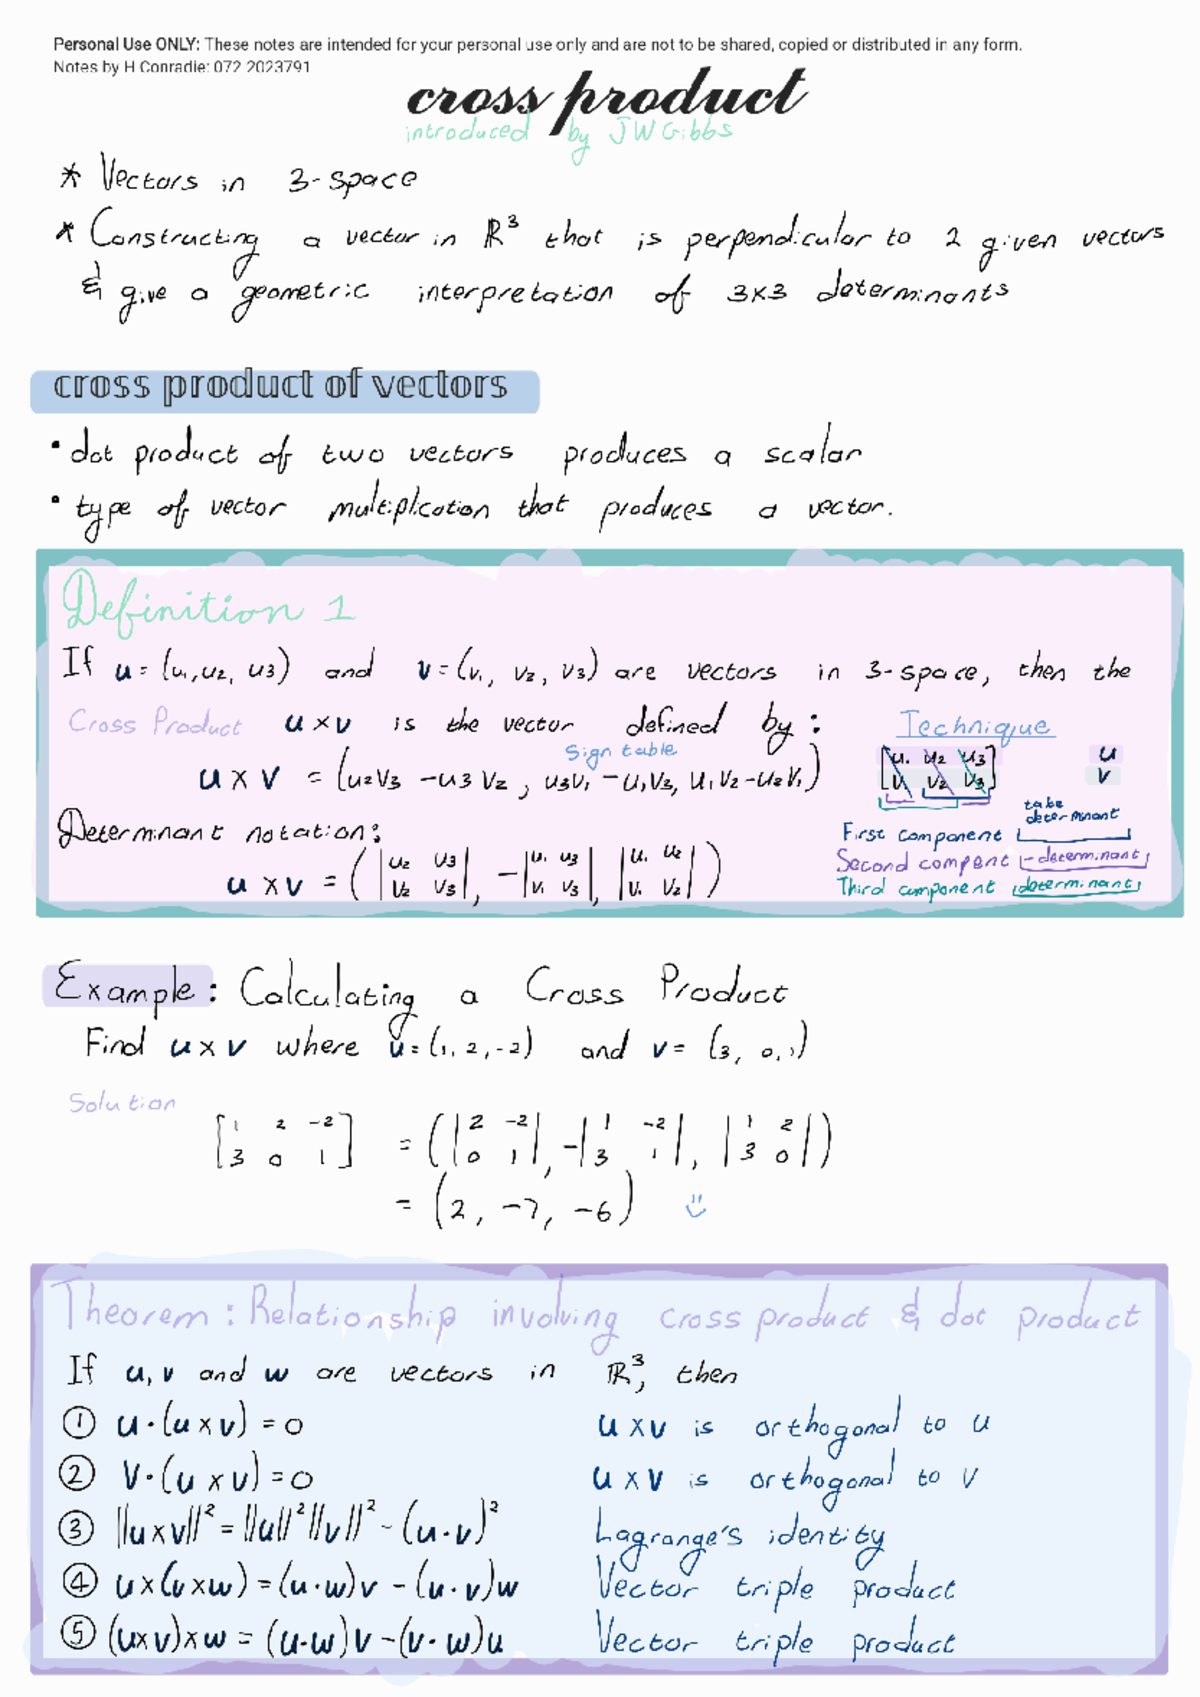 Personal Use ONLY: These notes are intended for your personal use only and are not to be shared, copied or distributed in any form.
Notes by H Conradie: 072 2023791
cross product
introduced by JW Gibbs
* Vectors in 3-space
* Constructing a vector in ℝ³ that is perpendicular to 2 given vectors
& give a geometric interpretation of 3x3 determinants
cross product of vectors
• dot product of two vectors produces a scalar
• type of vector multiplication that produces a vector.
Definition 1
If u = (u₁, u₂, u₃) and v = (v₁, v₂, v₃) are vectors in 3-space, then the
Cross Product u × v is the vector defined by:
Sign table
u × v = (u₂v₃ - u₃v₂, u₃v₁ - u₁v₃, u₁v₂ - u₂v₁)
Determinant notation:
u × v = ( |u₂ u₃; v₂ v₃|, -|u₁ u₃; v₁ v₃|, |u₁ u₂; v₁ v₂| )
Technique
[u₁ u₂ u₃] u
[v₁ v₂ v₃] v
take determinant
First component
Second compent - determinant
Third component determinant
Example: Calculating a Cross Product
Find u × v where u = (1, 2, -2) and v = (3, 0, 1)
Solution
[1 2 -2; 3 0 1] = ( |2 -2; 0 1|, -|1 -2; 3 1|, |1 2; 3 0| )
= (2, -7, -6)
Theorem: Relationship involving cross product & dot product
If u, v and w are vectors in ℝ³, then
① u · (u × v) = 0 u × v is orthogonal to u
② v · (u × v) = 0 u × v is orthogonal to v
③ ||u × v||² = ||u||² ||v||² - (u · v)² Lagrange's identity
④ u × (v × w) = (u · w)v - (u · v)w Vector triple product
⑤ (u × v) × w = (u · w)v - (v · w)u Vector triple product